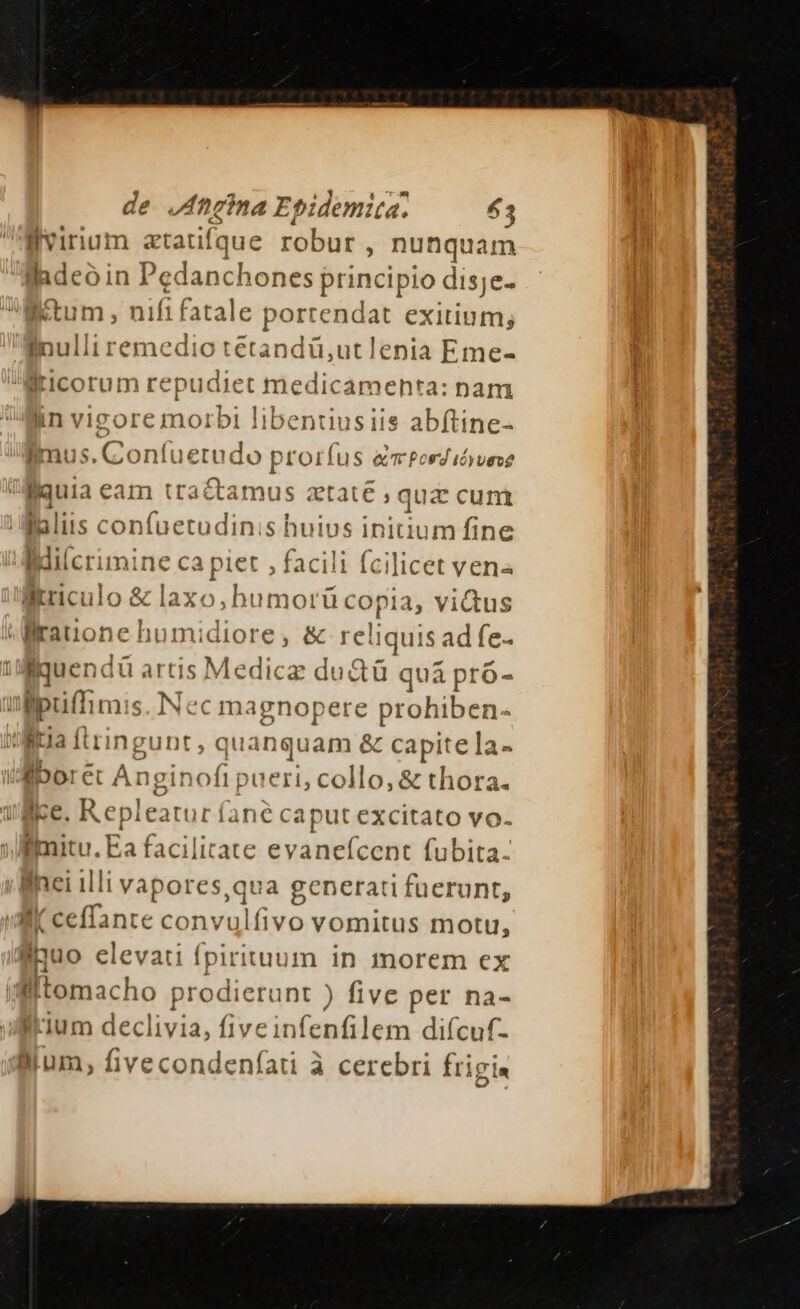 de Angina Epidemica. 63
virium ætatiſque robur, nunquam
adeò in Pedanchones principio disje-
ctum, niſi fatale portendat exitium,
nulli remedio tẽtandũ, ut lenia Eme-
ticorum repudiet medicamenta: nam
in vigore morbi libentius iis abſtine-
mus. Conſuetudo prorſus
quia eam tractamus ætatẽ, quæ cum
aliis conſuetudinis huius initium ſine
diſcrimine capiet, facili ſcilicet ven-
triculo & laxo, humorũ copia, victus
ratione humidiore, & reliquis ad ſe-
quendũ artis Medicæ ductũ quã prõ-
ptiſſimis. Nec magnopere prohiben-
tia ſtringunt, quanquam & capite la-
borẽt Anginoſi pueri, collo, & thora-
ce. Repleatur ſanè caput excitato vo-
mitu. Ea facilitate evaneſcent ſubita-
nei illi vapores, qua generati fuerunt,
( ceſſante convulſivo vomitus motu,
quo elevati ſpirituum in morem ex
ſtomacho prodierunt ) ſive per na-
rium declivia, ſive inſenſilem diſcuſ-
um, ſive condenſati à cerebri frigi-